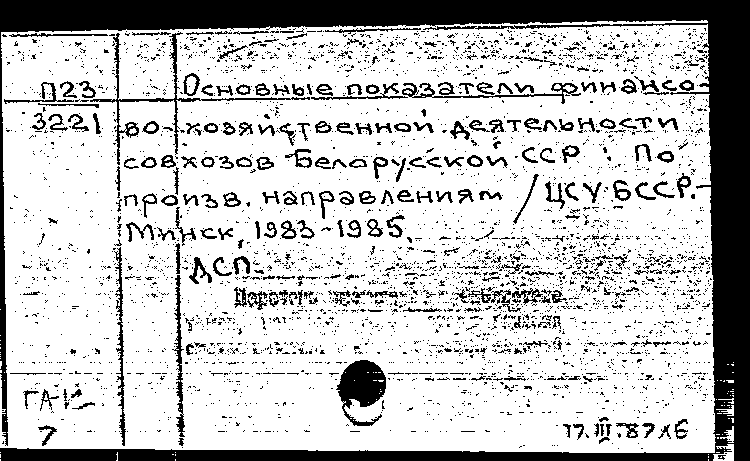 П23 Основные показатели финансо-
3221 во-хозяйственной деятельности
совхозов Белорусской ССР : По
произв. направлениям / ЦСУ БССР.-
Минск, 1983-1985.
ДСП.
7
17.III.87